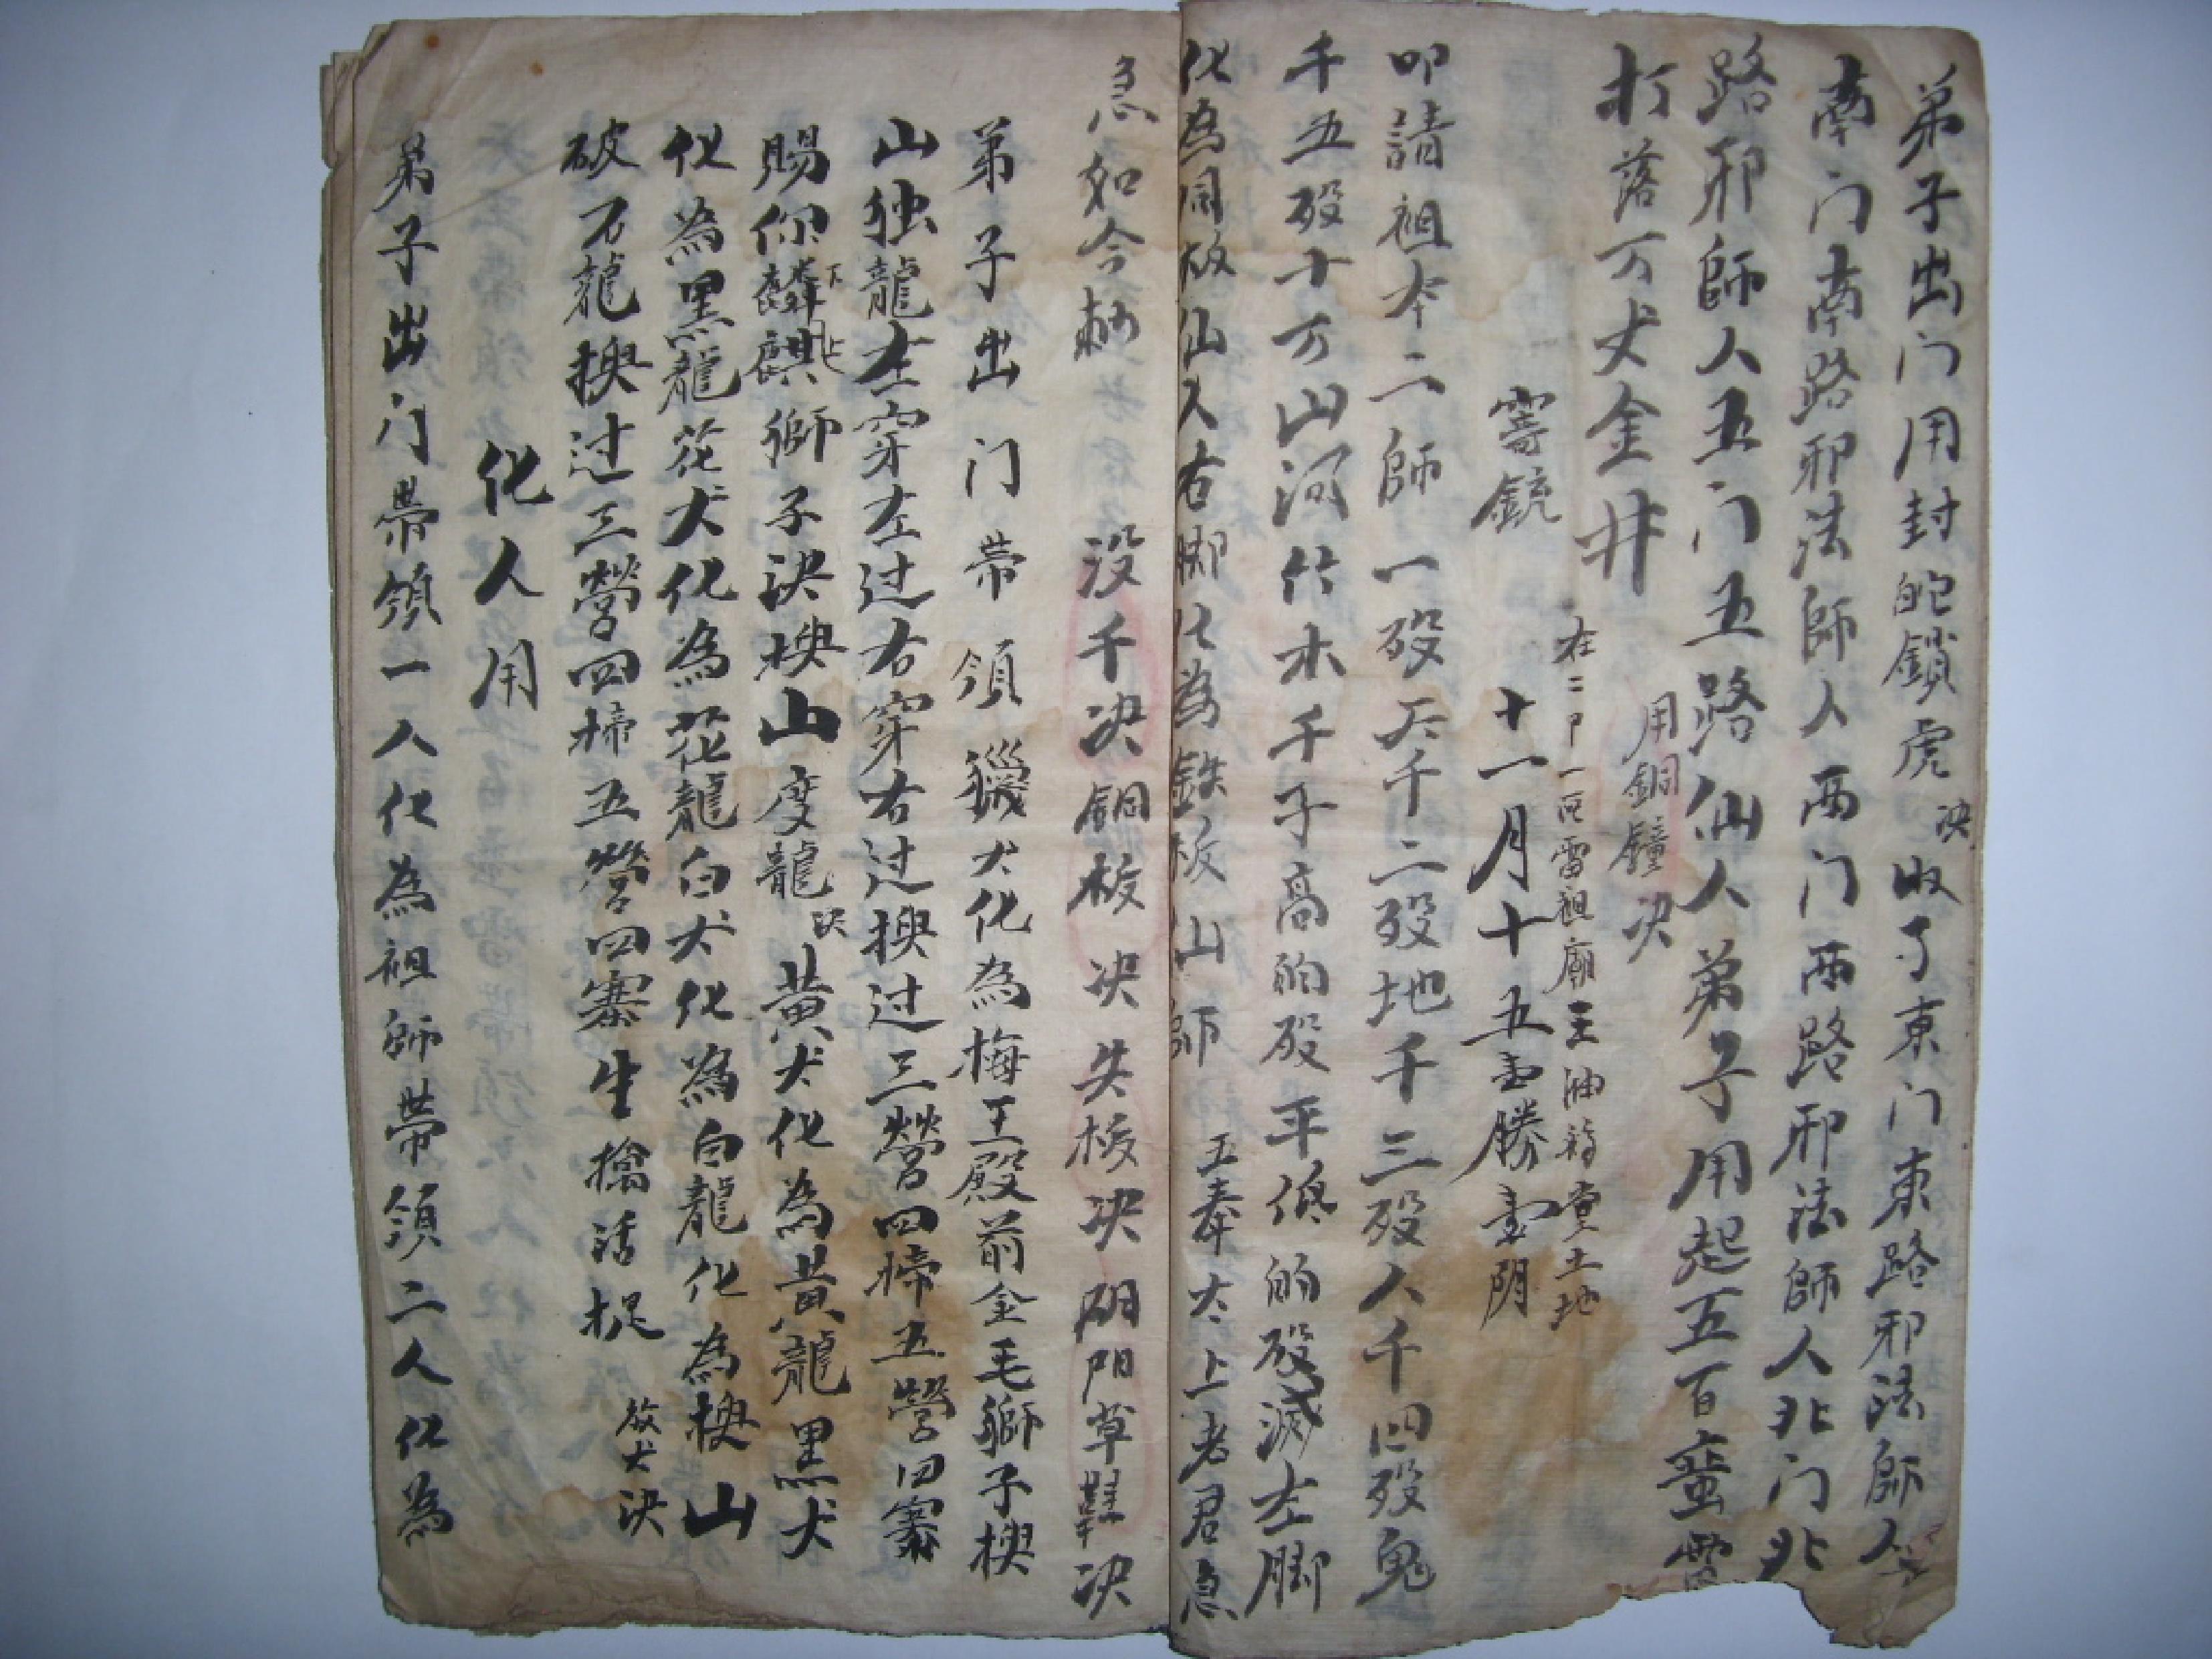 弟子出门用封蛇鎖虎决收了東门東路邪法師人
南门南路邪法師人西门西路邪法師人北门北
路邪師人五门五路仙人弟子用起五百蛮雷
打落万丈金井 用銅鐘决
在二甲一 雷祖廟王 土地
寄銃 十一月十五 勝 阴
叩請祖本二師一殁天千二殁地千三殁人千四殁鬼
千五殁十万山河竹木千子高的殁平低的殁滅左脚
化為同板仙人右脚化為鉄板山師 五奉太上老君急
急如令勅 没千决銅板决失板决阴阳草鞋决
弟子出门带領獵犬化為梅王殿前金毛獅子摸
山独龍左穿左过右穿右过摸过三營四梆五營四寨
賜你麟麒獅子决摸山度龍决黄犬化為黄龍黑犬
化為黑龍花犬化為花龍白犬化為白龍化為摸山
破石龍摸过三營四梆五營四寨生擒活捉 放犬决
化人用
弟子出门带領一人化為祖師带領二人化為